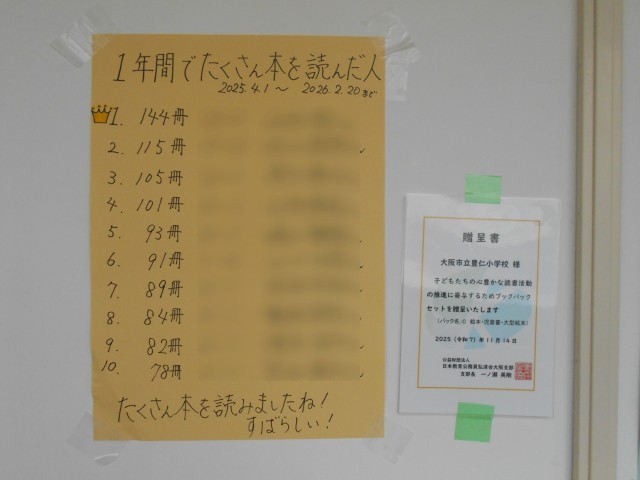 1年間でたくさん本を読んだ人
2025.4.1〜2026.2.20まで
1. 144冊
2. 115冊
3. 105冊
4. 101冊
5. 93冊
6. 91冊
7. 89冊
8. 84冊
9. 82冊
10. 78冊
たくさん本を読みましたね!
すばらしい!
贈呈書
大阪市立豊仁小学校 様
子どもたちの心豊かな読書活動
の推進に寄与するためブックパック
セットを贈呈いたします
2025(令和7)年11月14日
公益財団法人
日本教育公務員弘済会大阪支部
支部長 一ノ瀬 英剛